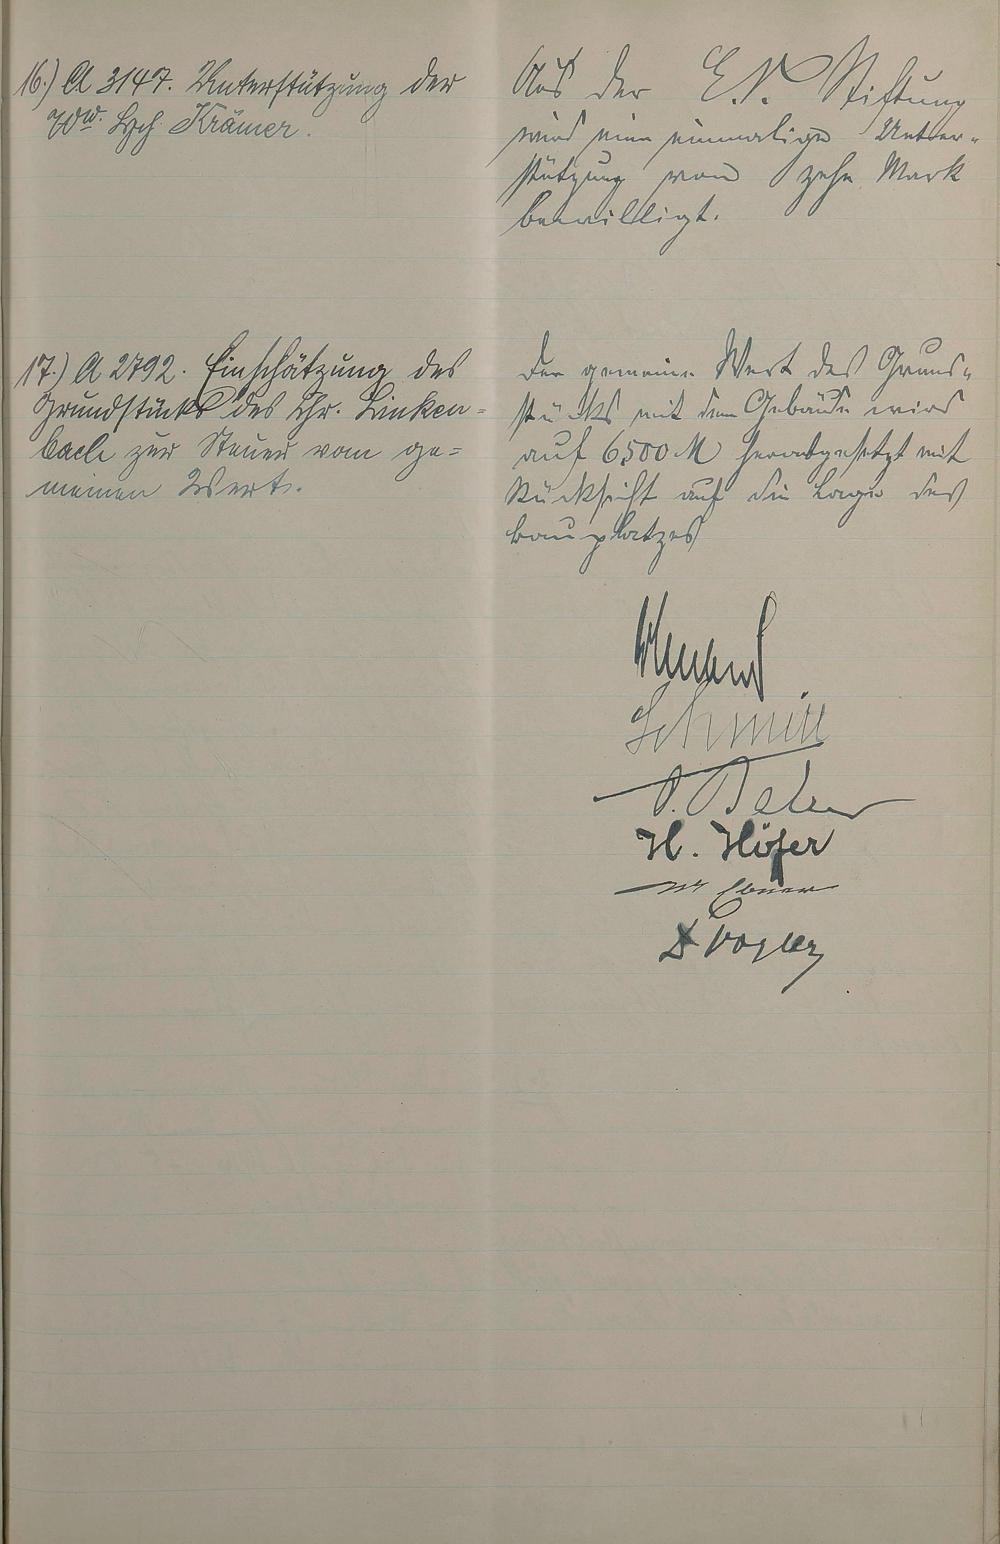 16.) A 3147. Unterstützung der
Ww. Hch Krämer.
Aus der E. N. Stiftung
wird eine einmalige Unter-
stützung von zehn Mark
bewilligt.
17.) A 2792. Einschätzung des
Grundstücks des Chr. Linken=
bach zur Steuer vom ge=
meinen Wert.
Der gemeine Wert des Grund-
stücks mit dem Gebäude wird
auf 6500 M herabgesetzt mit
Rücksicht auf die Lage des
Bauplatzes
Schmitt
H. Höfer
Ebner
Vogler